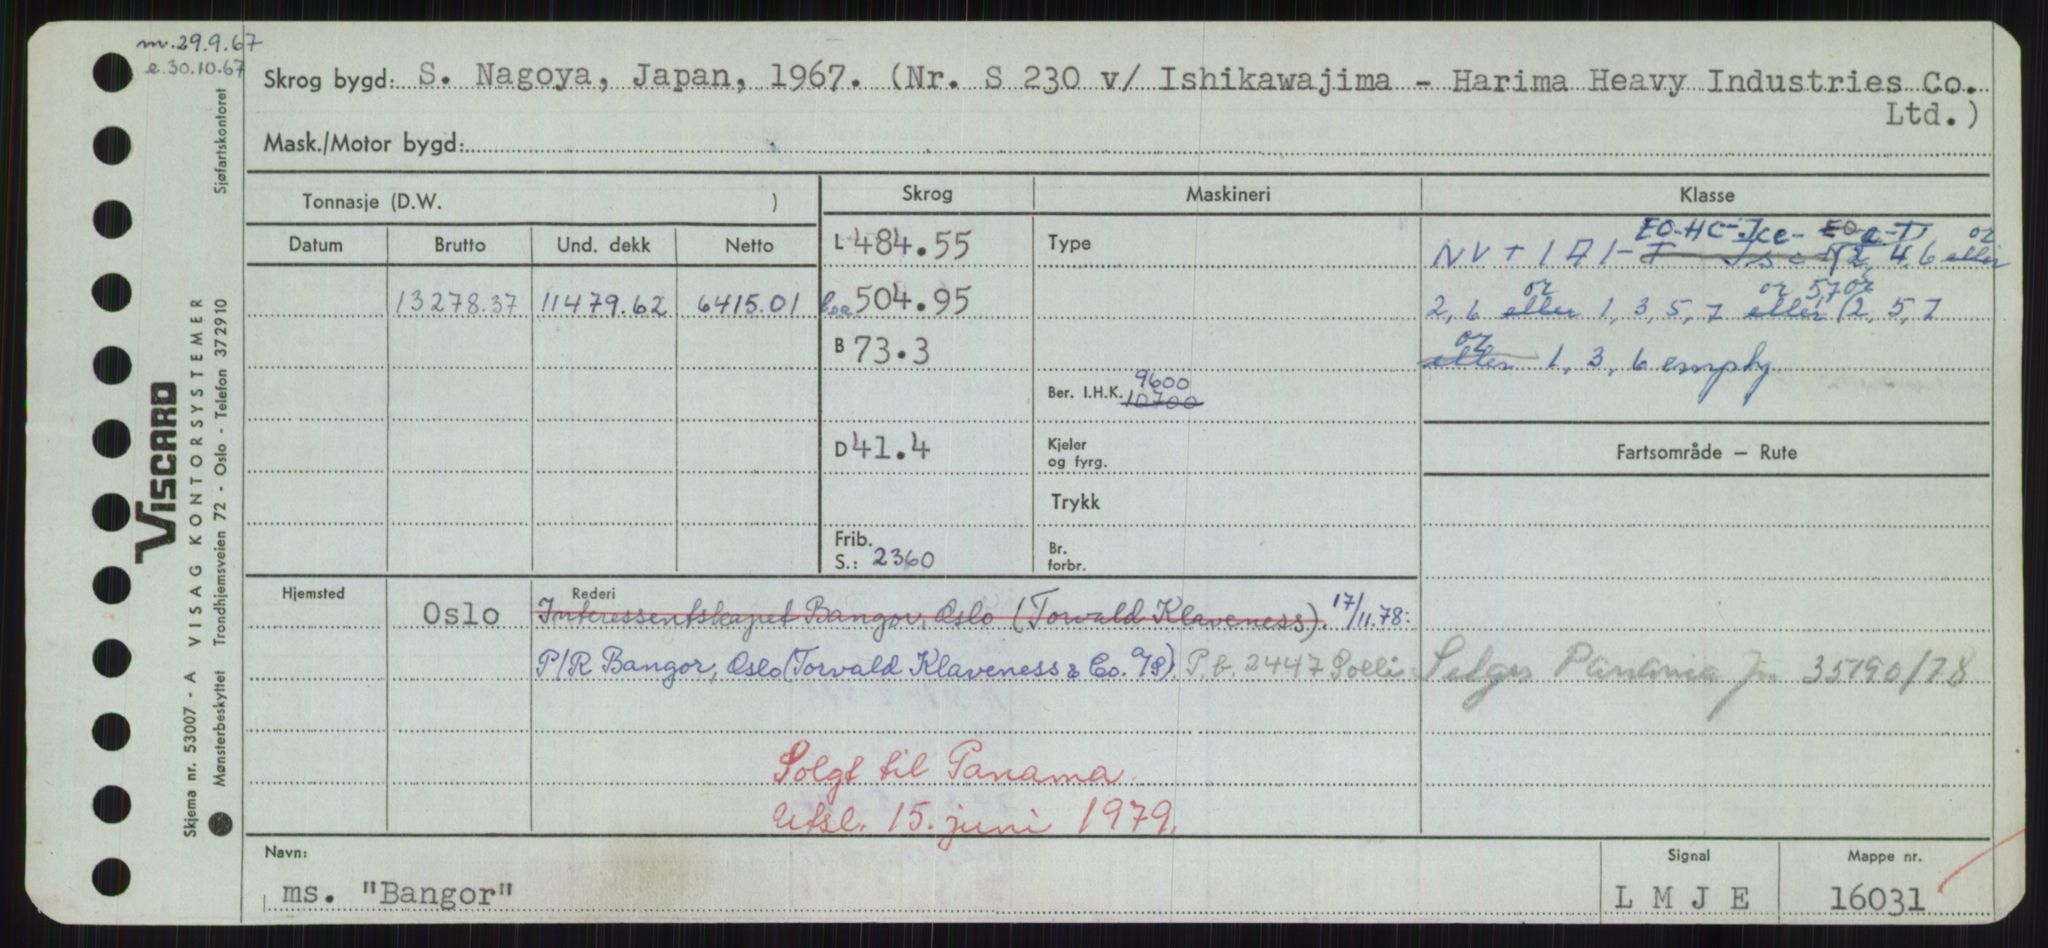 m. 29.9.67
e. 30.10.67
Skrog bygd: S. Nagoya, Japan, 1967. (Nr. S 230 v/ Ishikawajima - Harima Heavy Industries Co.
Ltd.)
Mask./Motor bygd:
Tonnasje (D.W. )
Skrog
Maskineri
Klasse
Datum
Brutto
Und. dekk
Netto
L 484.55
Type
EO-HC-Ice- EO C-T or
NV + 1A1- 2, 4, 6 eller
13278.37
11479.62
6415.01
504.95
or or 5,7 or
2, 6 eller 1, 3, 5, 7 eller 2, 5, 7
B 73.3
or
eller 1, 3, 6 empty
9600
Ber. I.H.K. 10700
D 41.4
Kjeler
og fyrg.
Fartsområde — Rute
Trykk
Frib.
S.: 2360
Br.
forbr.
Hjemsted
Oslo
Rederi
Interessentskapet Bangor, Oslo (Torvald Klaveness). 17/11.78:
P/R Bangor, Oslo (Torvald Klaveness & Co. A/S). P.b. 2447 Solli
Selges Panama Jnr 35190/78
Solgt til Panama.
Utsl. 15. juni 1979.
Navn:
ms. "Bangor"
Signal
L M J E
Mappe nr.
16031
VISCARD
Skjema nr. 53007 - A VISAG KONTORSYSTEMER
Mønsterbeskyttet Trondhjemsveien 72 - Oslo - Telefon 372910 Sjøfartskontoret